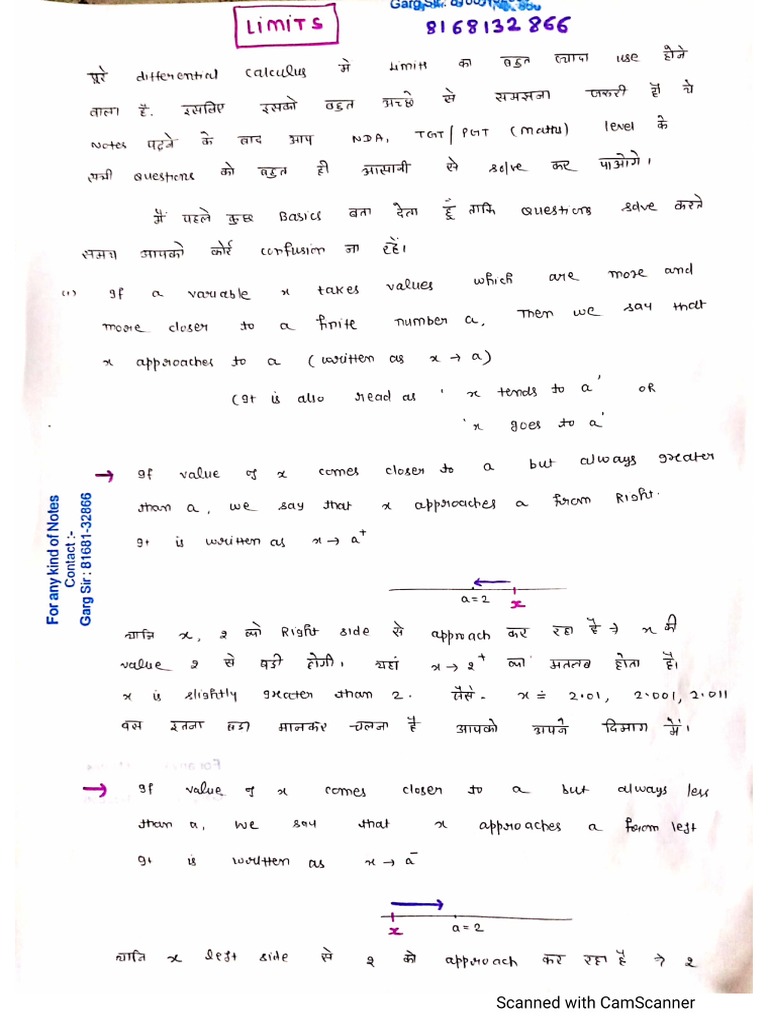 LIMITS
Garg Sir:
8168132866
पूरे differential calculus में Limits का बहुत ज्यादा use होने
वाला है. इसलिए इसको बहुत अच्छे से समझना जरूरी है। ये
Notes पढ़ने के बाद आप NDA, TGT/PGT (Maths) level के
सभी questions को बहुत ही आसानी से solve कर पाओगे।
मैं पहले कुछ Basics बता देता हूँ ताकि questions solve करते
समय आपको कोई confusion ना रहें।
(1) If a variable x takes values which are more and
more closer to a finite number a, Then we say that
x approaches to a (written as x → a)
(It is also read as 'x tends to a' OR
'x goes to a'
→ If value of x comes closer to a but always greater
than a, we say that x approaches a from Right.
It is written as x → a⁺
a=2
x
यानि x, 2 को Right side से approach कर रहा है ⇒ x की
value 2 से बड़ी होगी। यहां x → 2⁺ का मतलब होता है।
x is slightly greater than 2. जैसे- x = 2.01, 2.001, 2.011
बस इतना बड़ा मानकर चलना है आपको अपने दिमाग में।
→ If value of x comes closer to a but always less
than a, we say that x approaches a form left
It is written as x → a⁻
x
a=2
यानि x left side से 2 को approach कर रहा है ⇒ 2
For any kind of Notes
Contact :-
Garg Sir : 81681-32866
Scanned with CamScanner